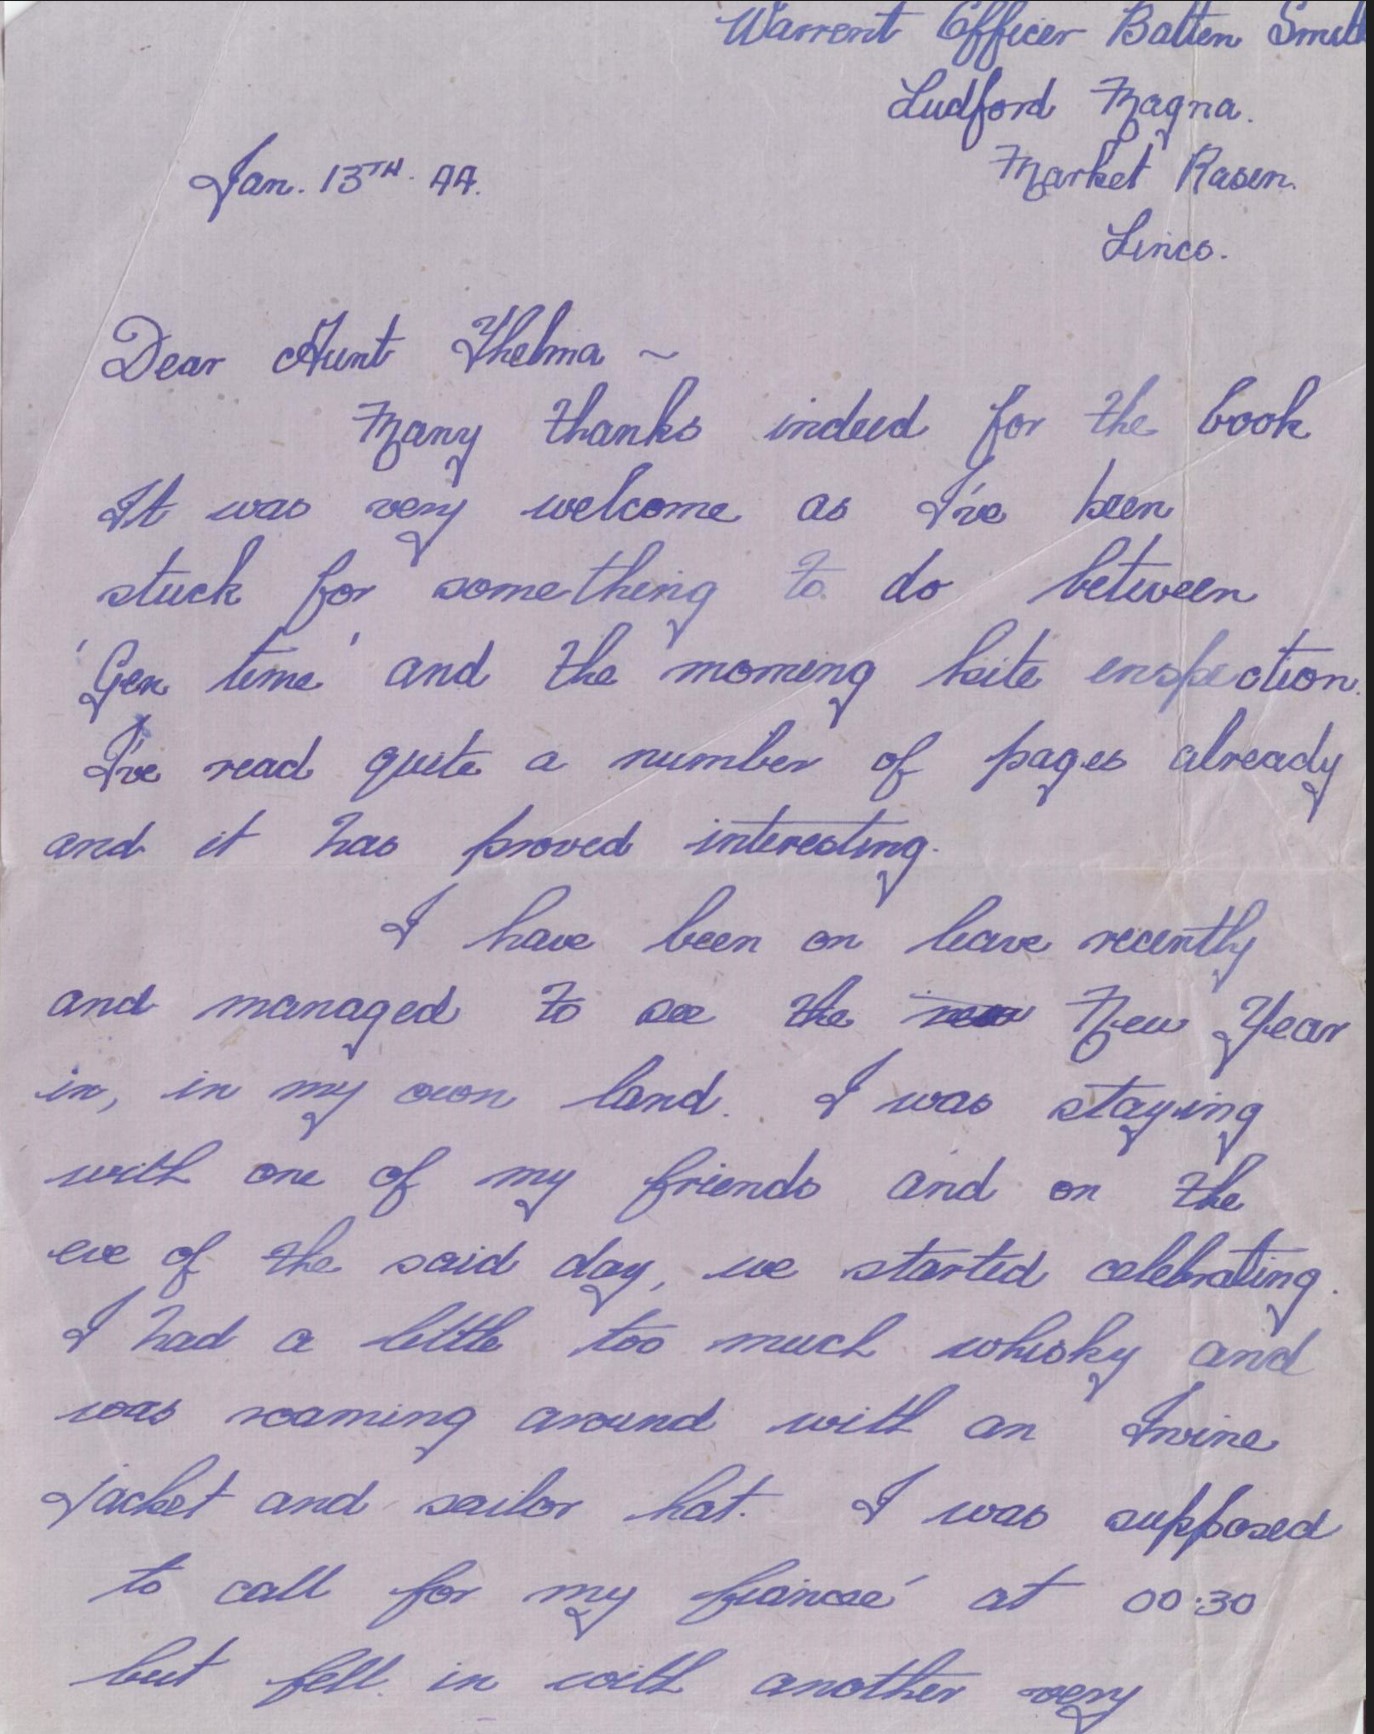 Warrent Officer Batten Smith
Ludford Magna.
Jan. 13TH. 44.
Market Rasen.
Lincs.
Dear Aunt Thelma ~
Many thanks indeed for the book
It was very welcome as I've been
stuck for something to do between
'Gen time' and the morning kite inspection.
I've read quite a number of pages already
and it has proved interesting.
I have been on leave recently
and managed to see the new New Year
in, in my own land. I was staying
with one of my friends and on the
eve of the said day, we started celebrating.
I had a little too much whisky and
was roaming around with an Irvine
jacket and sailor hat. I was supposed
to call for my fiancée at 00:30
but fell in with another very